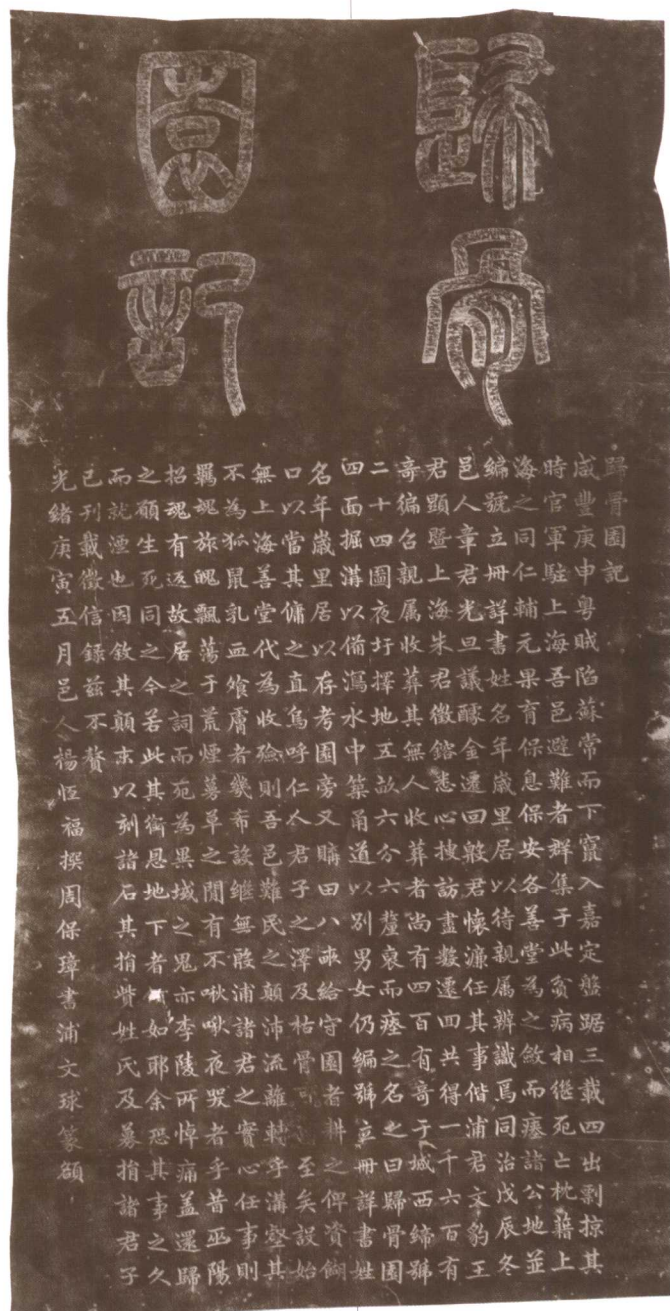 歸骨
園記
歸骨園記
咸豐庚申粤賊陷蘇常而下竄入嘉定盤踞三載四出剽掠其
時官軍駐上海吾邑避難者群集于此貧病相繼死亡枕藉上
海之同仁輔元果育保息保安各善堂為之斂而瘞諸公地並
編號立冊詳書姓名年歲里居以待親属辨識焉同治戊辰冬
邑人章君光旦議醵金遷回殷君懷濂任其事偕浦君文豹王
君顯暨上海朱君徵鎔悉心搜訪盡數遷回共得一千六百有
奇編召親属收葬其無人收葬者尚有四百有奇于城西締號
二十四圖夜圩擇地五畝六分六釐裒而瘞之名之曰歸骨園
四面掘溝以備瀉水中築甬道以别男女仍編號立冊詳書姓
名年歲里居以存考園旁又購田八畝給守園者耕之俾資餬
口以當其傭之直烏呼仁人君子之澤及枯骨可至矣設始
無上海善堂代為收殮則吾邑難民之顛沛流離轉乎溝壑其
不為狐鼠乳血飧膚者幾希設繼無殷浦諸君之實心任事則
羈魂旅魄飄蕩于荒煙蔓草之間有不啾啾夜哭者乎昔巫陽
招魂有返故居之詞而死為異域之鬼亦李陵所悼痛盖還歸
之願生死同之今若此其銜恩地下者如耶余恐其事之久
而就湮也因敘其顛末以刻諸石其捐貲姓氏及募捐諸君子
已刊載徵信錄茲不贅
光緒庚寅五月邑人楊恒福撰周保璋書浦文球篆額